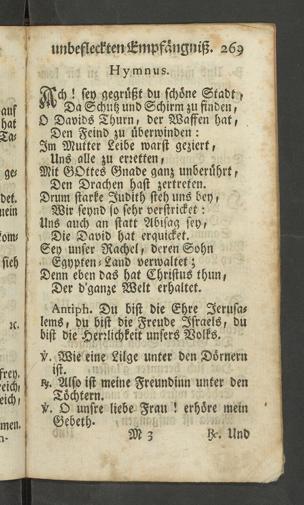 unbefleckten Empfängniß. 269
Hymnus.
Ach! sey gegrüßt du schöne Stadt,
Da Schutz und Schirm zu finden,
O Davids Thurn, der Waffen hat,
Den Feind zu überwinden:
Im Mutter Leibe warst geziert,
Uns alle zu erretten,
Mit GOttes Gnade ganz unberührt,
Den Drachen hast zertreten.
Drum starke Judith steh uns bey,
Wir seynd so sehr verstricket:
Uns auch an statt Abisag sey,
Die David hat erquicket.
Sey unser Rachel, deren Sohn
Egypten-Land verwaltet;
Denn eben das hat Christus thun,
Der d'ganze Welt erhaltet.
Antiph. Du bist die Ehre Jerusa-
lems, du bist die Freude Israels, du
bist die Herrlichkeit unsers Volks.
℣. Wie eine Lilge unter den Dörnern
ist.
℟. Also ist meine Freundinn unter den
Töchtern.
℣. O unsre liebe Frau! erhöre mein
Gebeth.
M 3 ℟. Und
auf
hat
Ta-
ge-
det.
mein
kom-
sich
ꝛc.
frey.
reich,
reich,
men.
n-